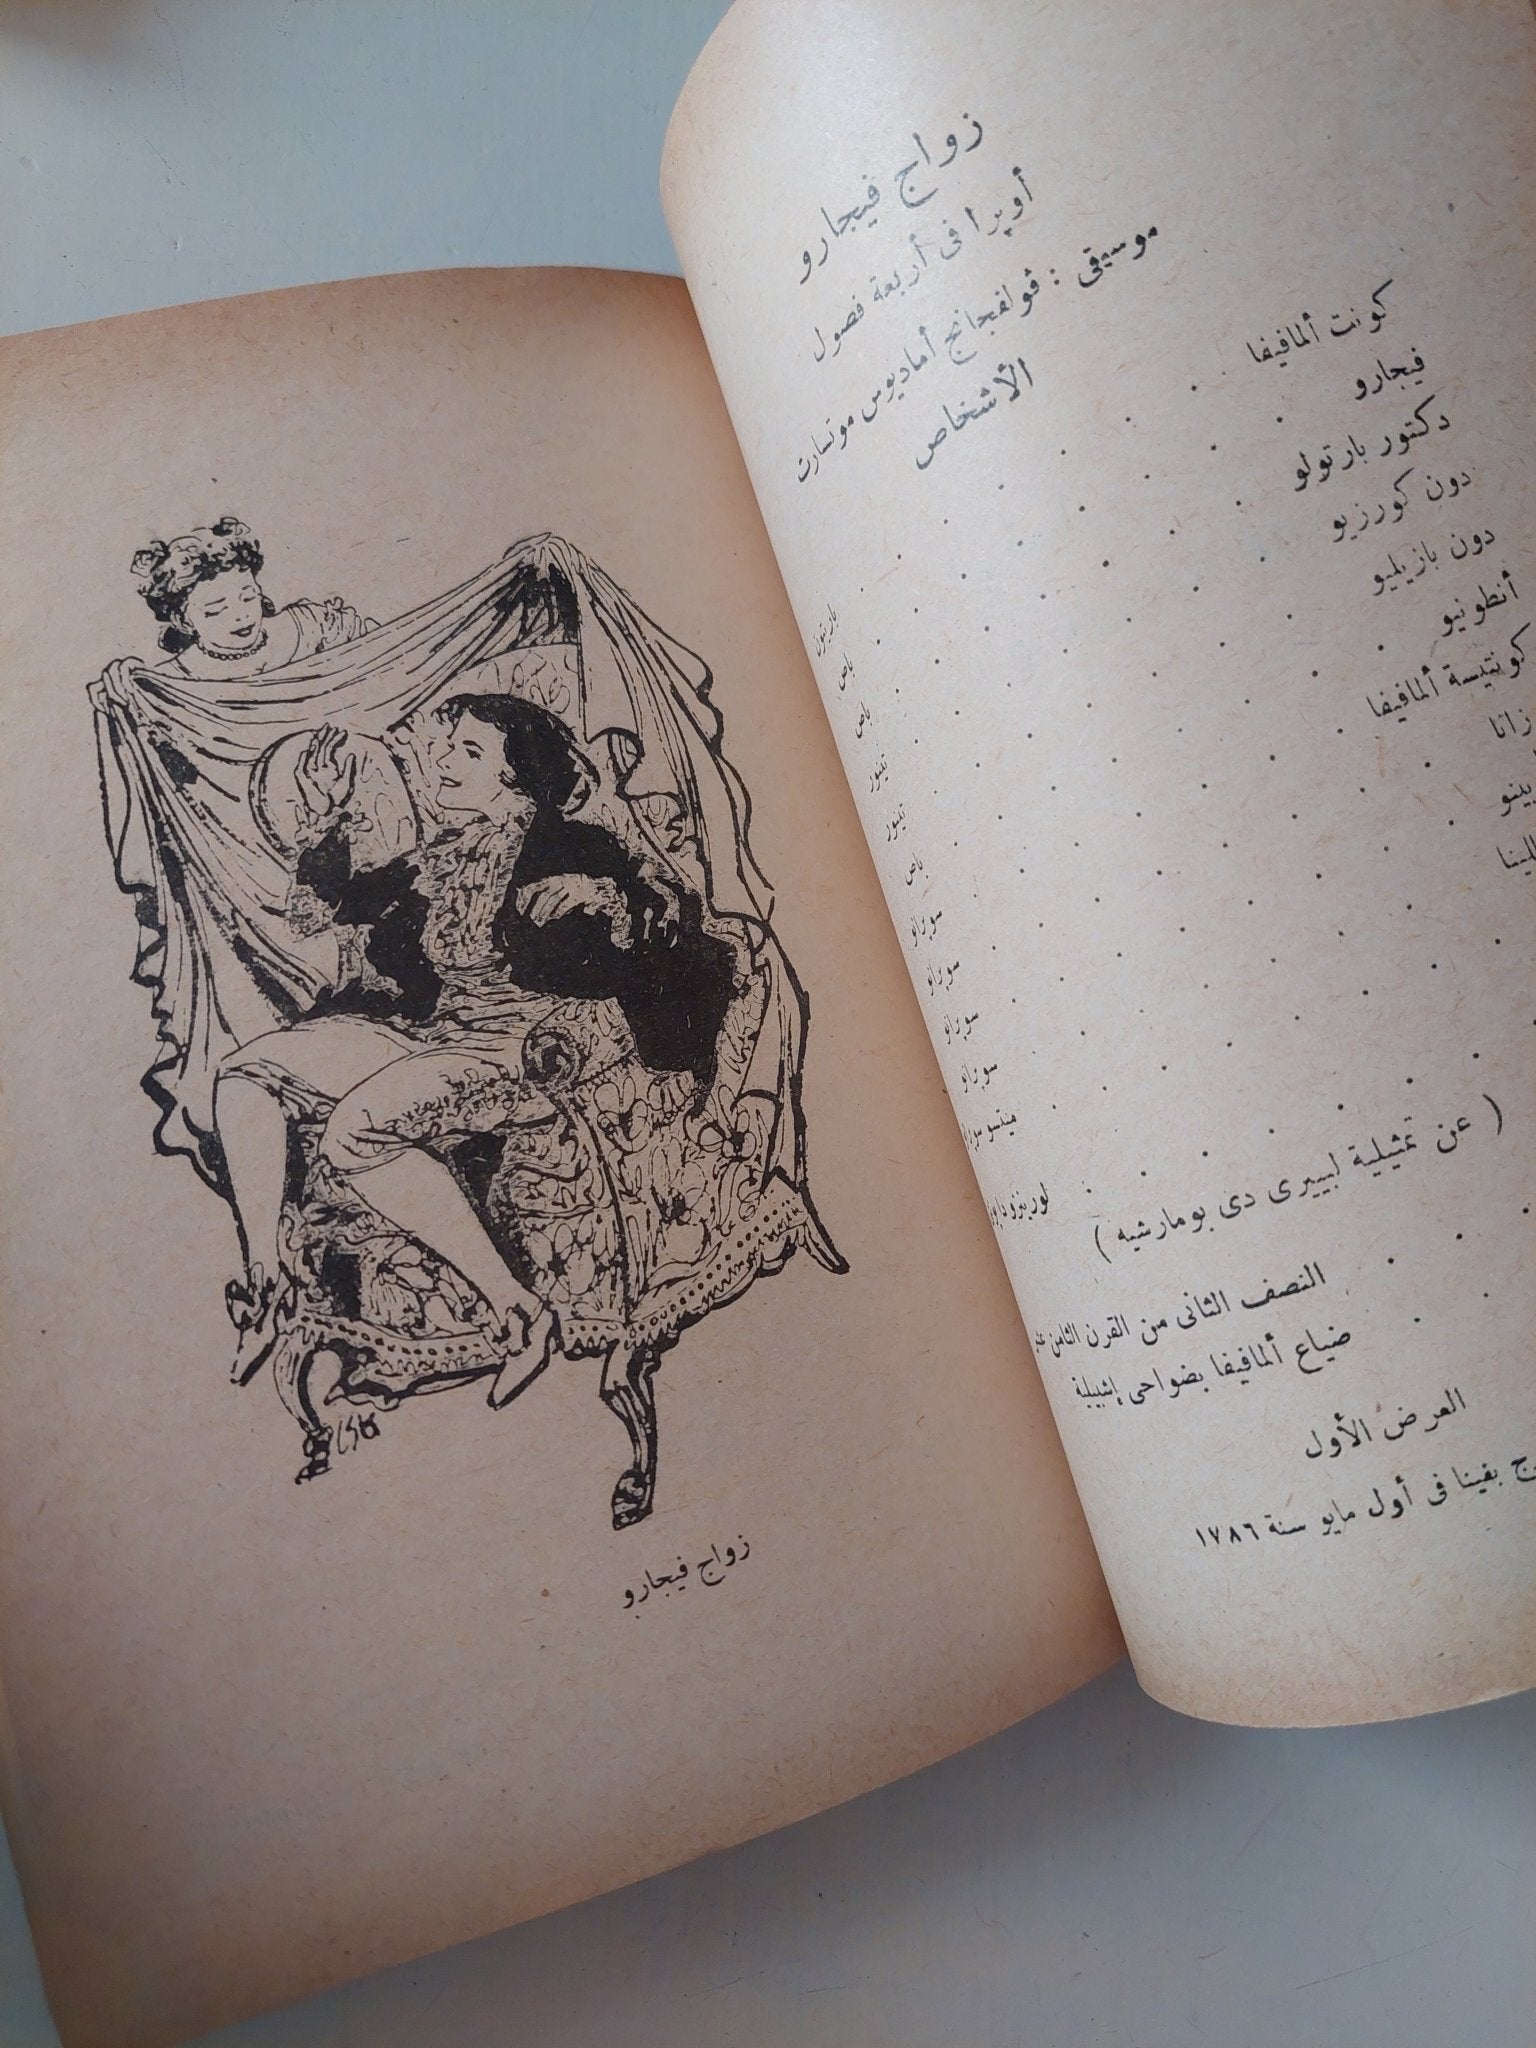 زواج فيجارو
أوپرا فى أربعة فصول
موسيقى : ڤولفجانج أماديوس موتسارت
الأشخاص
كونت ألمافيفا . . . . . . باريتون
فيجارو . . . . . . باص
دكتور بارتولو . . . . . . باص
دون كورزيو . . . . . . تينور
دون بازيليو . . . . . . تينور
أنطونيو . . . . . . باص
كونتيسة ألمافيفا . . . . . . سوپرانو
زانا . . . . . . سوپرانو
. . . . . . سوپرانو
. . . . . . سوپرانو
. . . . . . ميتسو سوپرانو
لورينزو
( عن تمثيلية لبييرى دى بومارشيه )
النصف الثانى من القرن الثامن عشر
ضياع ألمافيفا بضواحى إشبيلية
العرض الأول
بفينا فى أول مايو سنة ١٧٨٦
زواج فيجارو